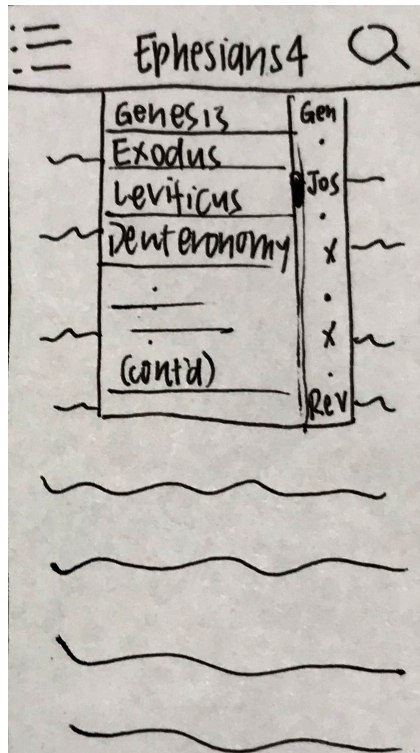 Ephesians 4
Genesis
Exodus
Leviticus
Deuteronomy
(cont'd)
Gen
Jos
x
x
Rev